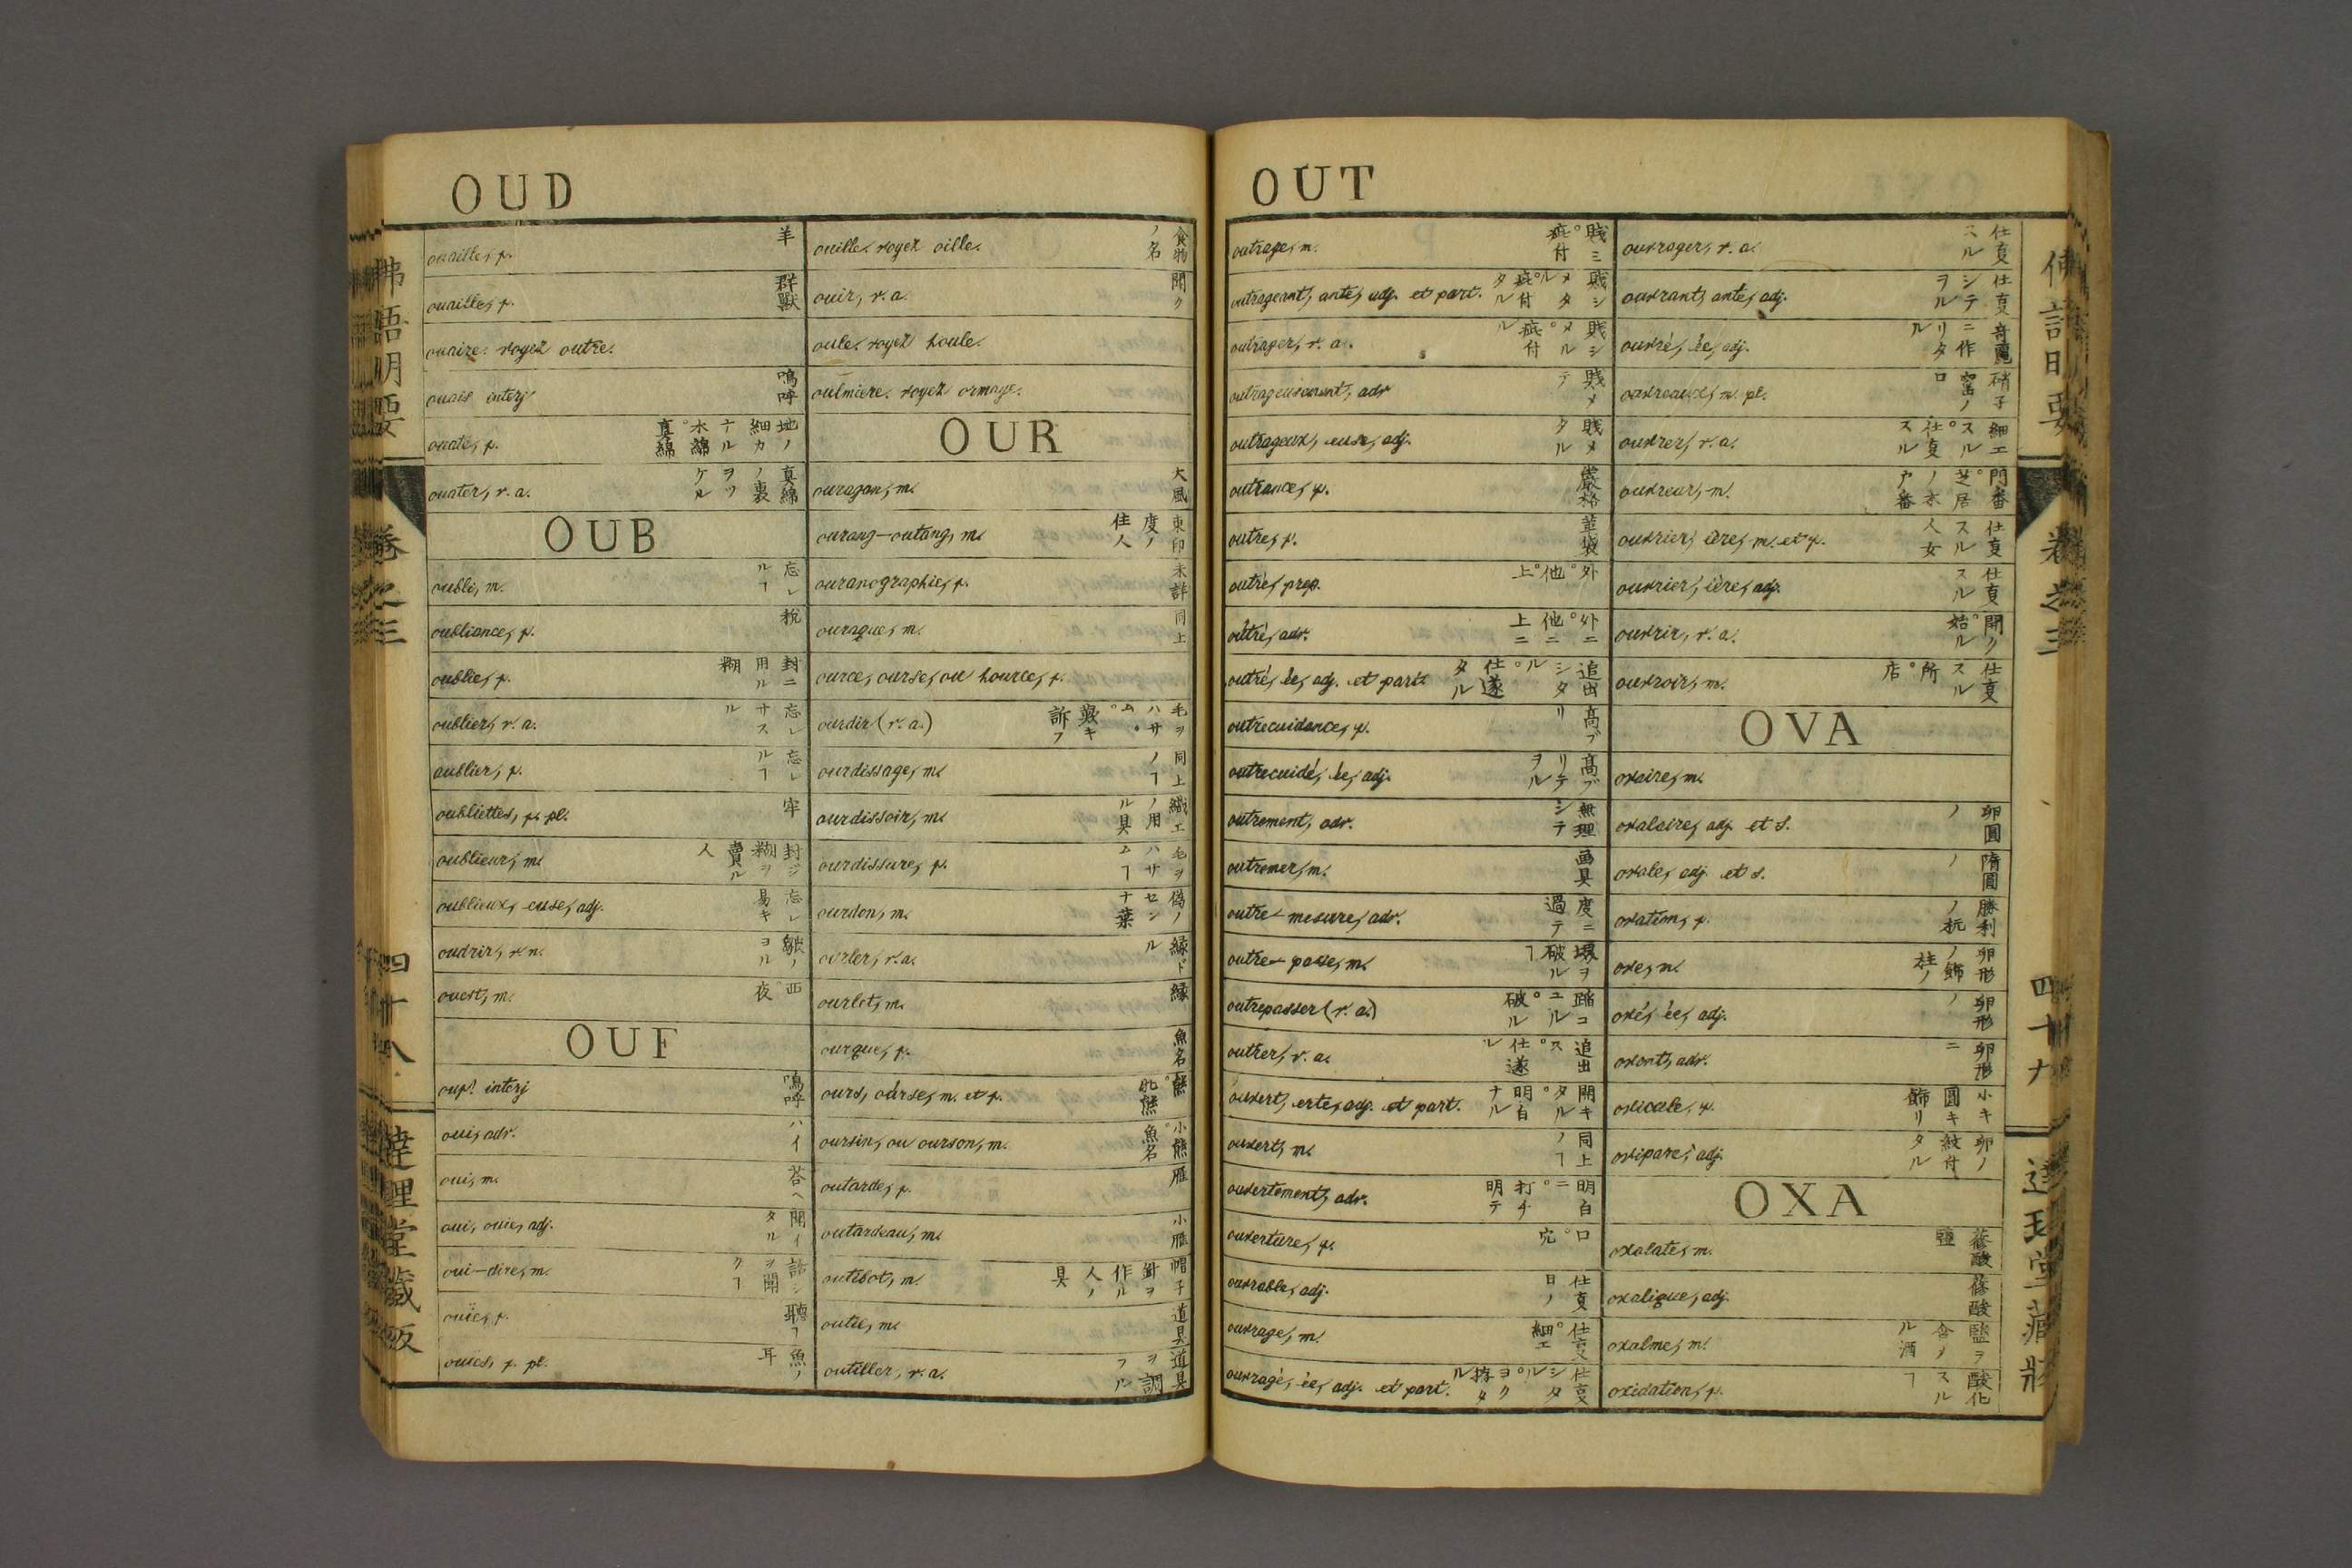 OUD
佛語明要
卷之三
四十八
達理堂藏版
ouaille, f. 羊
ouaille, f. 群獸
ouaire. voyez outre.
ouais interj 嗚呼
ouate, f. 地ノ細カナル木綿。真綿
ouater, v. a. 真綿ノ裏ヲツケル
OUB
oubli, m. 忘レルヿ
oubliance, f.
oublie, f. 封ニ用ル糊
oublier, v. a. 忘レサスル
oublier, f. 忘レルヿ
oubliettes, f. pl. 牢
oublieur, m. 封ジ糊ヲ賣ル人
oublieux, euse, adj. 忘レ易キ
oudrir, v. n. 皺ノヨル
ouest, m. 西。夜
OUF
ouf! interj 嗚呼
oui, adv. ハイ
oui, m. 荅ヘ
oui, ouie, adj. 聞イタル
oui-dire, m. 話シヲ聞クヿ
ouïe, f. 聽ヿ
ouies, f. pl. 魚ノ耳
ouille. voyez oille. 食物ノ名
ouir, v. a. 聞ク
oule. voyez houle.
oulmiere. voyez ormaye.
OUR
ouragan, m. 大風
ourang-outang, m. 東印度ノ住人
ouranographie, f. 未詳
ouraque, m. 同上
ource, ourse, ou hource, f.
ourdir (v. a.) 毛ヲハサム。巽キ訴フ
ourdissage, m. 同上ノヿ
ourdissoir, m. 織工ノ用ル具
ourdissure, f. 毛ヲハサムヿ
ourdon, m. 偽ノセンナ葉
ourler, v. a. 縁ドル
ourlet, m. 縁
ourque, f. 魚名
ours, ourse, m. et f. 熊。牝熊
oursin, ou ourson, m. 小熊。魚名
outarde, f. 雁
outardeau, m. 小雁
outibot, m. 帽子針ヲ作ル人ノ具
outil, m. 道具
outiller, v. a. 道具ヲ調フル
OUT
outrage, m. 賤ミ。疵付
outrageant, ante, adj. et part. 賤シメタル。疵付タル
outrager, v. a. 賤シメル。疵付ル
outrageusement, adv 賤メテ
outrageux, euse, adj. 賤メタル
outrance, f. 嚴格
outre, f. 韮袋
outre, prep. 外。他。上
outre, adv. 外ニ他ニ上ニ
outré, ée, adj. et part. 追出シタル。仕遂タル
outrecuidance, f. 高ブリ
outrecuidé, ée, adj. 高ブリテヲル
outrement, adv. 無理シテ
outremer, m. 畫具
outre-mesure, adv. 度ニ過テ
outre-passe, m. 場ヲ破ルヿ
outrepasser (v. a.) 踰コユル。破ル
outrer, v. a. 追出ス。仕遂ル
ouvert, erte, adj. et part. 開キタル。明白ナル
ouvert, m. 同上ノヿ
ouvertement, adv. 明白ニ。打チ明テ
ouverture, f. 口。穴
ouvrable, adj. 仕事日ノ
ouvrage, m. 仕事。細工
ouvragé, ée, adj. et part. 仕事シタル。
ouvrager, v. a. 仕事スル
ouvrant, ante, adj. 仕事シテヲル
ouvré, ée, adj. 奇麗ニ作リタル
ouvreaux, m. pl. 硝子窯ノ口
ouvrer, v. a. 細工スル。仕事スル
ouvreur, m. 門番。芝居ノ木戸番
ouvrier, ière, m. et f. 仕事スル人女
ouvrier, ière, adj. 仕事スル
ouvrir, v. a. 開ク。始ル
ouvroir, m. 仕事スル所。店
OVA
ovaire, m.
ovalaire, adj. et s. 卵圓ノ
ovale, adj. et s. 隋圓ノ
ovation, f. 勝利ノ
ove, m. 卵形ノ飾柱ノ
ové, ée, adj. 卵形ノ
ovent, adv. 卵形ニ
ovicule, f. 小キ圓キ飾リ
ovipare, adj. 卵ノ紋付タル
OXA
oxalate, m. 蓚酸鹽
oxalique, adj. 蓚酸
oxalme, m. 鹽ヲ含メル酒
oxidation, f. 酸化スルヿ
佛語明要
卷之三
四十九
達理堂藏版